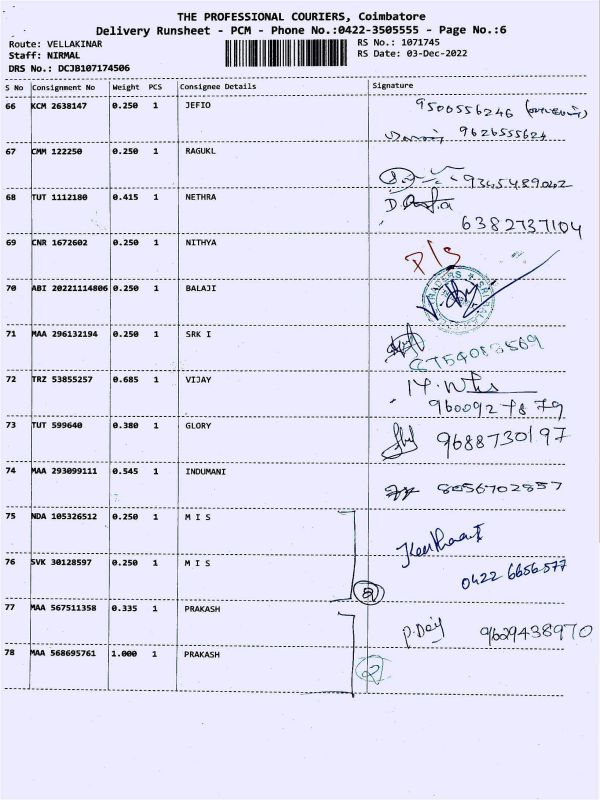 THE PROFESSIONAL COURIERS, Coimbatore
Delivery Runsheet - PCM - Phone No.:0422-3505555 - Page No.:6
Route: VELLAKINAR
RS No.: 1071745
Staff: NIRMAL
RS Date: 03-Dec-2022
DRS No.: DCJB107174506
S No Consignment No Weight PCS Consignee Details Signature
66 KCM 2638147 0.250 1 JEFIO 9500556246
9626555624
67 CMM 122250 0.250 1 RAGUKL
9345489042
68 TUT 1112180 0.415 1 NETHRA
6382737104
69 CNR 1672602 0.250 1 NITHYA
P/S
70 ABI 20221114806 0.250 1 BALAJI
71 MAA 296132194 0.250 1 SRK I
72 TRZ 53855257 0.685 1 VIJAY
9600927879
73 TUT 599640 0.380 1 GLORY
9688730197
74 MAA 293099111 0.545 1 INDUMANI
8056702857
75 NDA 105326512 0.250 1 M I S
76 SVK 30128597 0.250 1 M I S
0422 6656577
77 MAA 567511358 0.335 1 PRAKASH
9629438970
78 MAA 568695761 1.000 1 PRAKASH
2